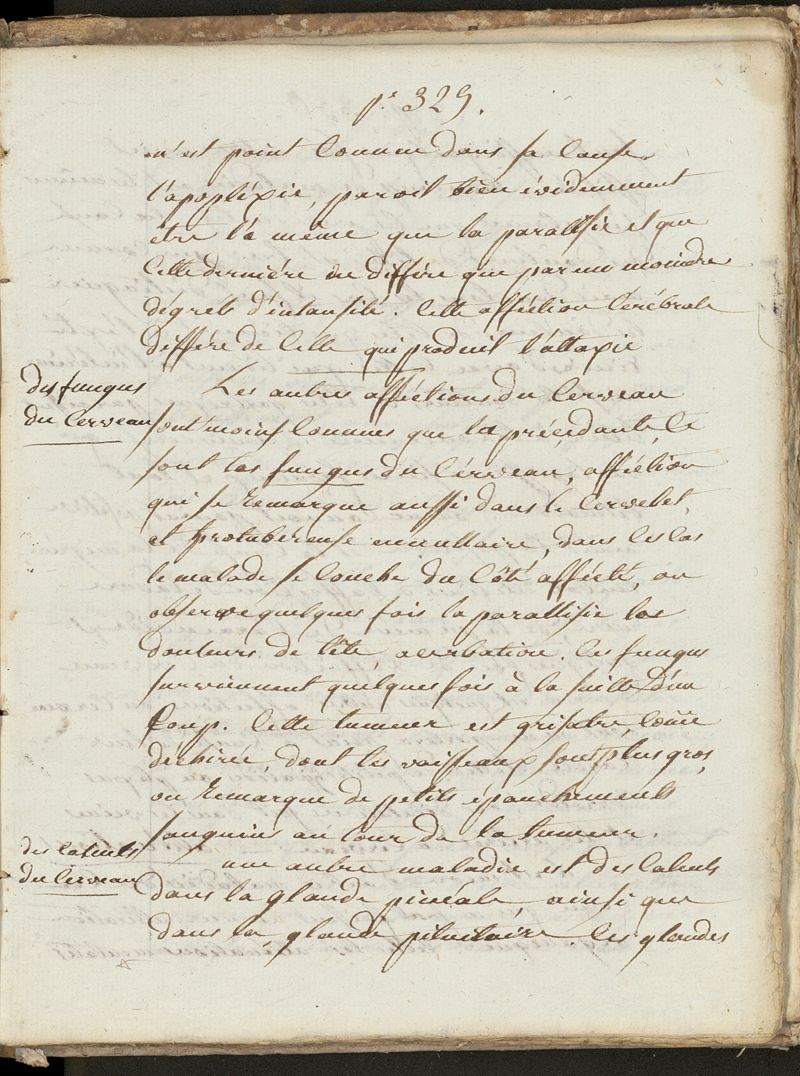 p.e 329.
n'est point connue dans sa cause
l'apopléxie, paroit bien évidemment
etre la même que la parallsie et que
cette derniére ne différe que par un moindre
dégrets d'intansité. cette afféction Cerébrale
différe de celle qui produit l'attaxie
des fungus
du Cerveau
Les autres afféctions du Cerveau
sont moins connues que la précédante, Ce
sont les fungus du Cérveau, afféction
qui se remarque aussi dans le Cervelet,
et protubérense annullaire, dans les cas
le malade se couche du côté affécté, on
observe quelques fois la parallisie les
douleurs de tête, . les fungus
surviennent quelques fois à la suitte d'un
Coup. Cette tumeur est grisatre, comme
déchirée, dont les vaisseaux sont plus gros,
on remarque de petits épanchements
sanguins au tour de la tumeur.
des calculs
du Cerveau
une autre maladie est des Calculs
dans la glande pinéale, ainsi que
dans la glande pituitaire les glandes